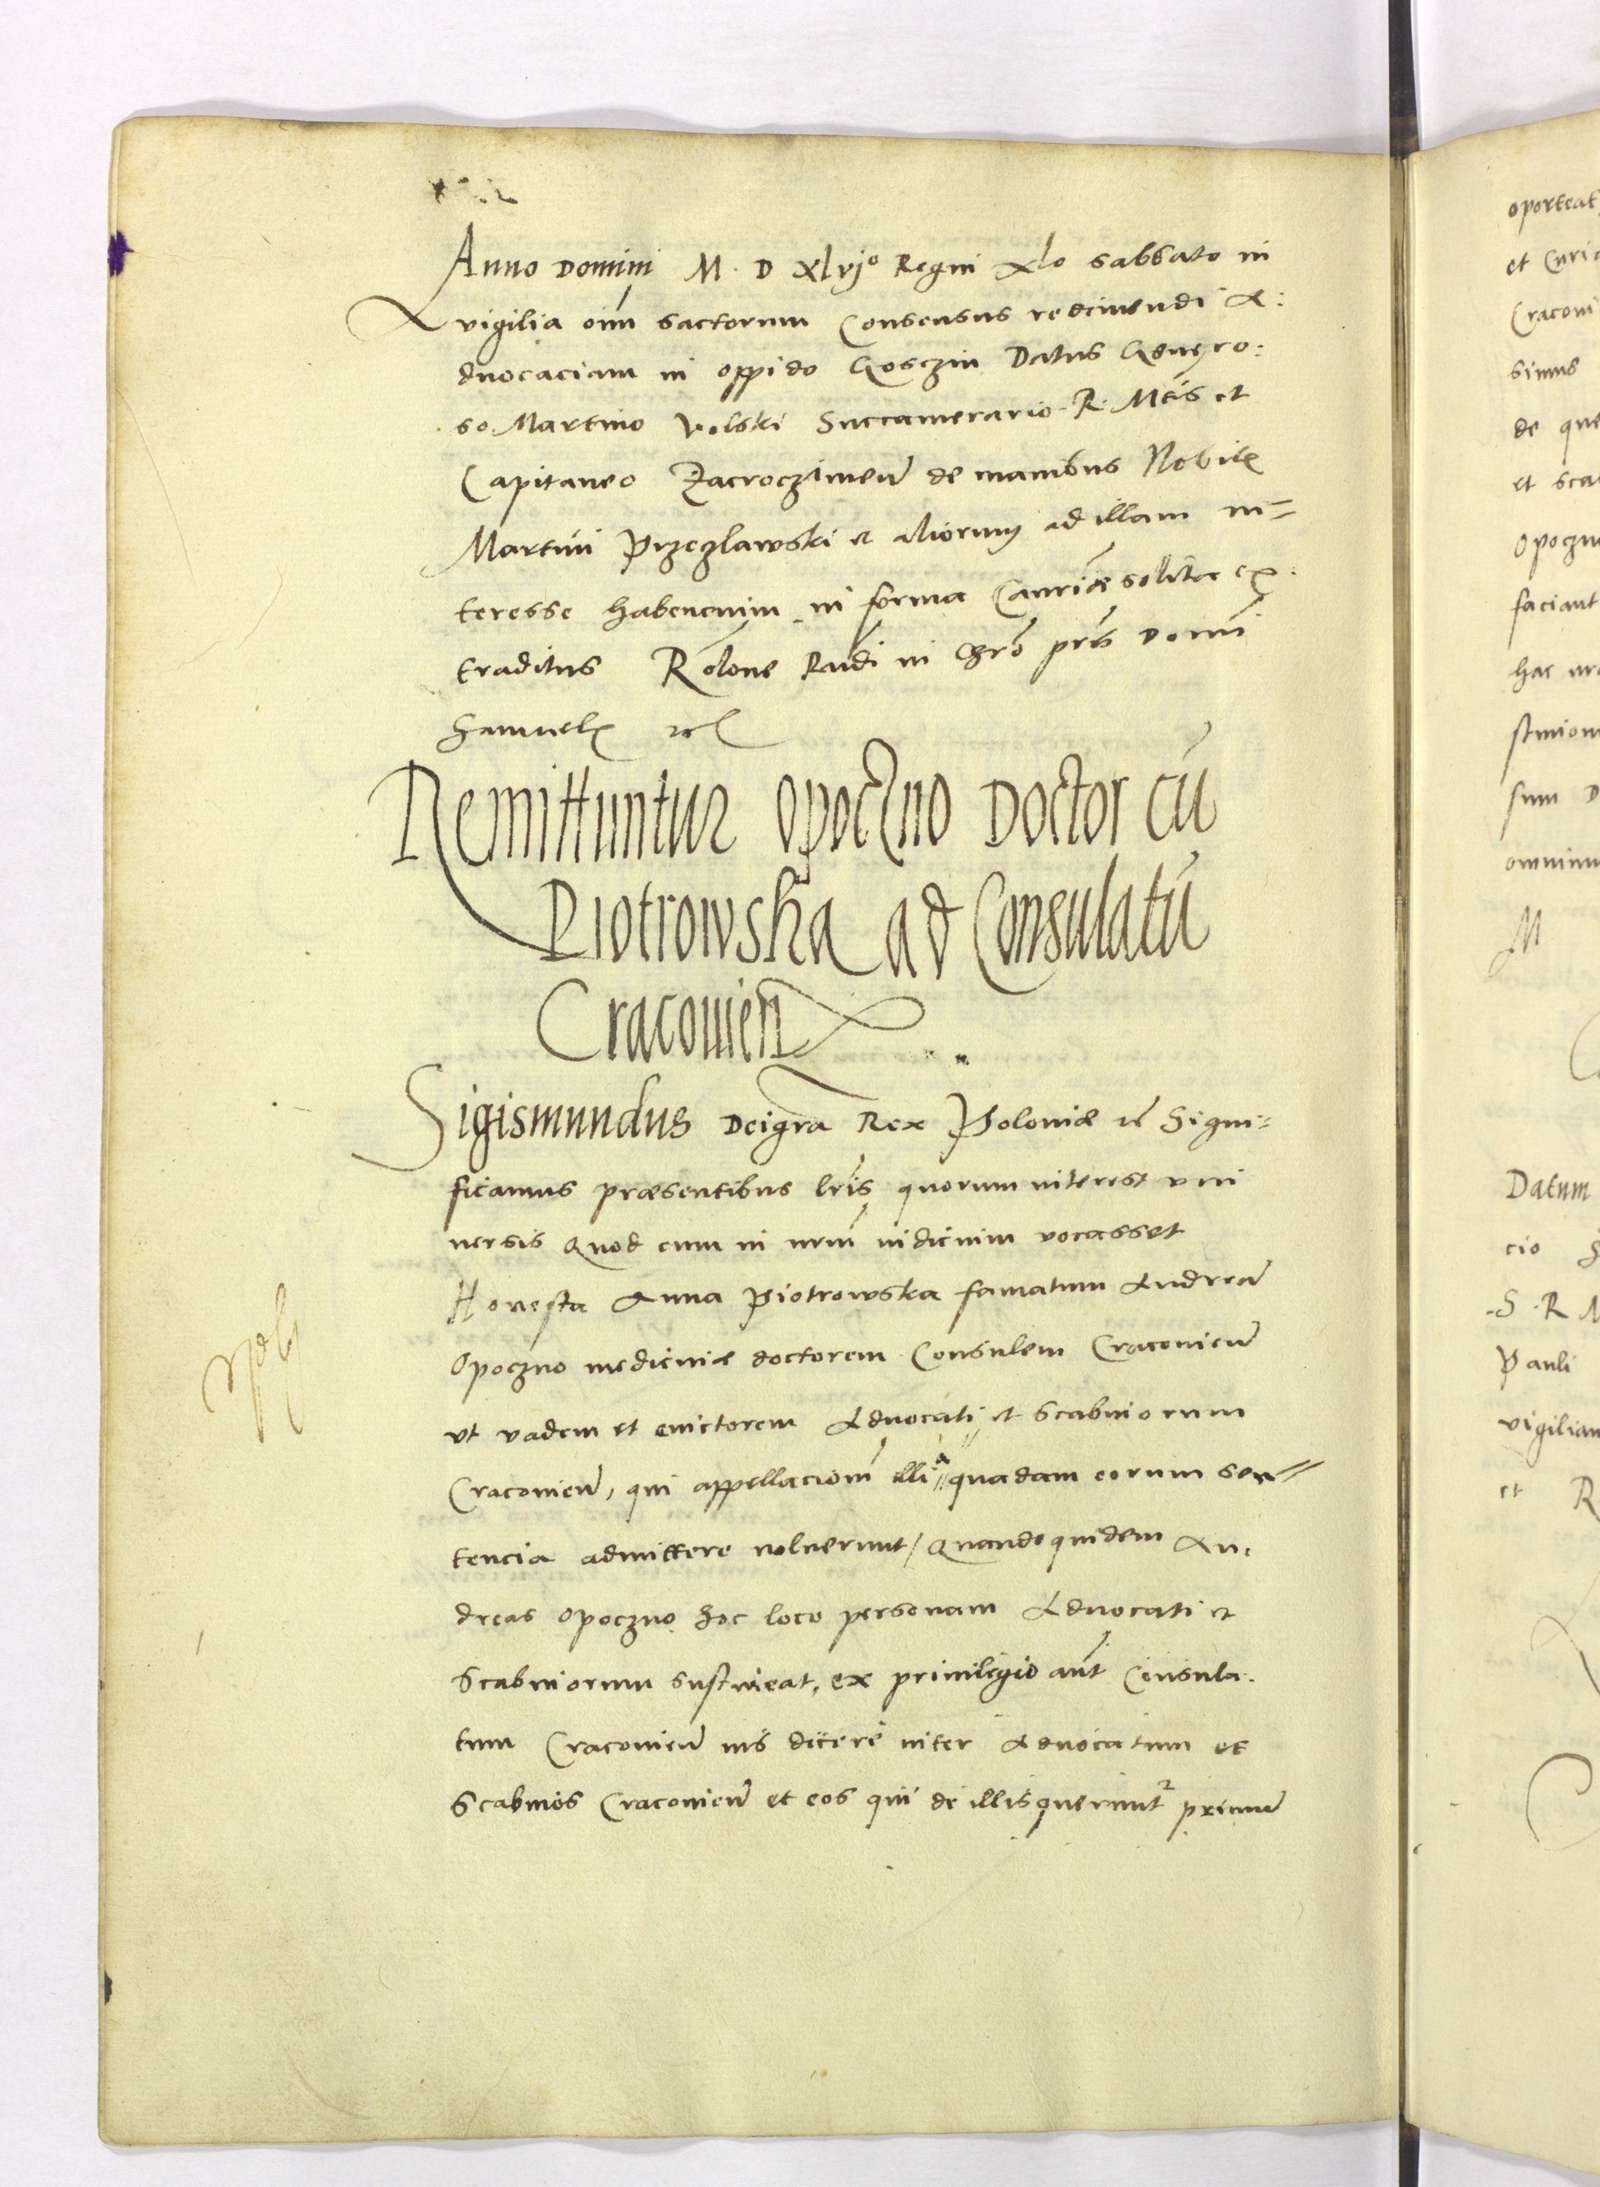 Anno Domini M. D xlvjo Regni xlo sabbato in
vigilia oim̃ sactorum Consensus redimendi A:
duocaciam in oppido Gosczin Datus Genero:
so Martino Volski Succamerario R. Mtis et
Capitaneo Zacroczimen̄ de manibus Nobil
Martini Przezlawski et aliorum ad illam in=
teresse haben̄ in forma Canc̄riæ solita ex
traditus Rōlone Rndi in Chrō pris̄ Domī
Samuel etc
Remittuntur Opoczno Doctor cū
Piotrowska ad Consulatū
Cracouien
Sigismundus Dei gra Rex Poloniæ etc Signi=
ficamus præsentibus lrīs quorum interest vni
uersis Quod cum in nrm̄ iudicium vocasset
Honesta Anna Piotrowska famatum Andreā
Opoczno medicinæ doctorem Consulem Cracouien̄
vt vadem et euictorem Aduocati et Scabinorum
Cracouien̄, qui appellacionm̄ illi a quadam eorum sen=
tencia admittere noluerunt / Quandoquidem An:
dreas Opoczno hoc loco personam Aduocati et
Scabinorum sustineat, ex priuilegio aut̄ Consula.
tum Cracouien̄ ius dicere inter Aduocatum et
Scabinos Cracouien̄ et eos qui de illis queruntr primū
oporteat
et Curi
Craconi
simus
de que
et sca
Opoczn
faciant
hac nr
sum D
M
Datum
cio
S. R M
Pauli
vigiliam
et R